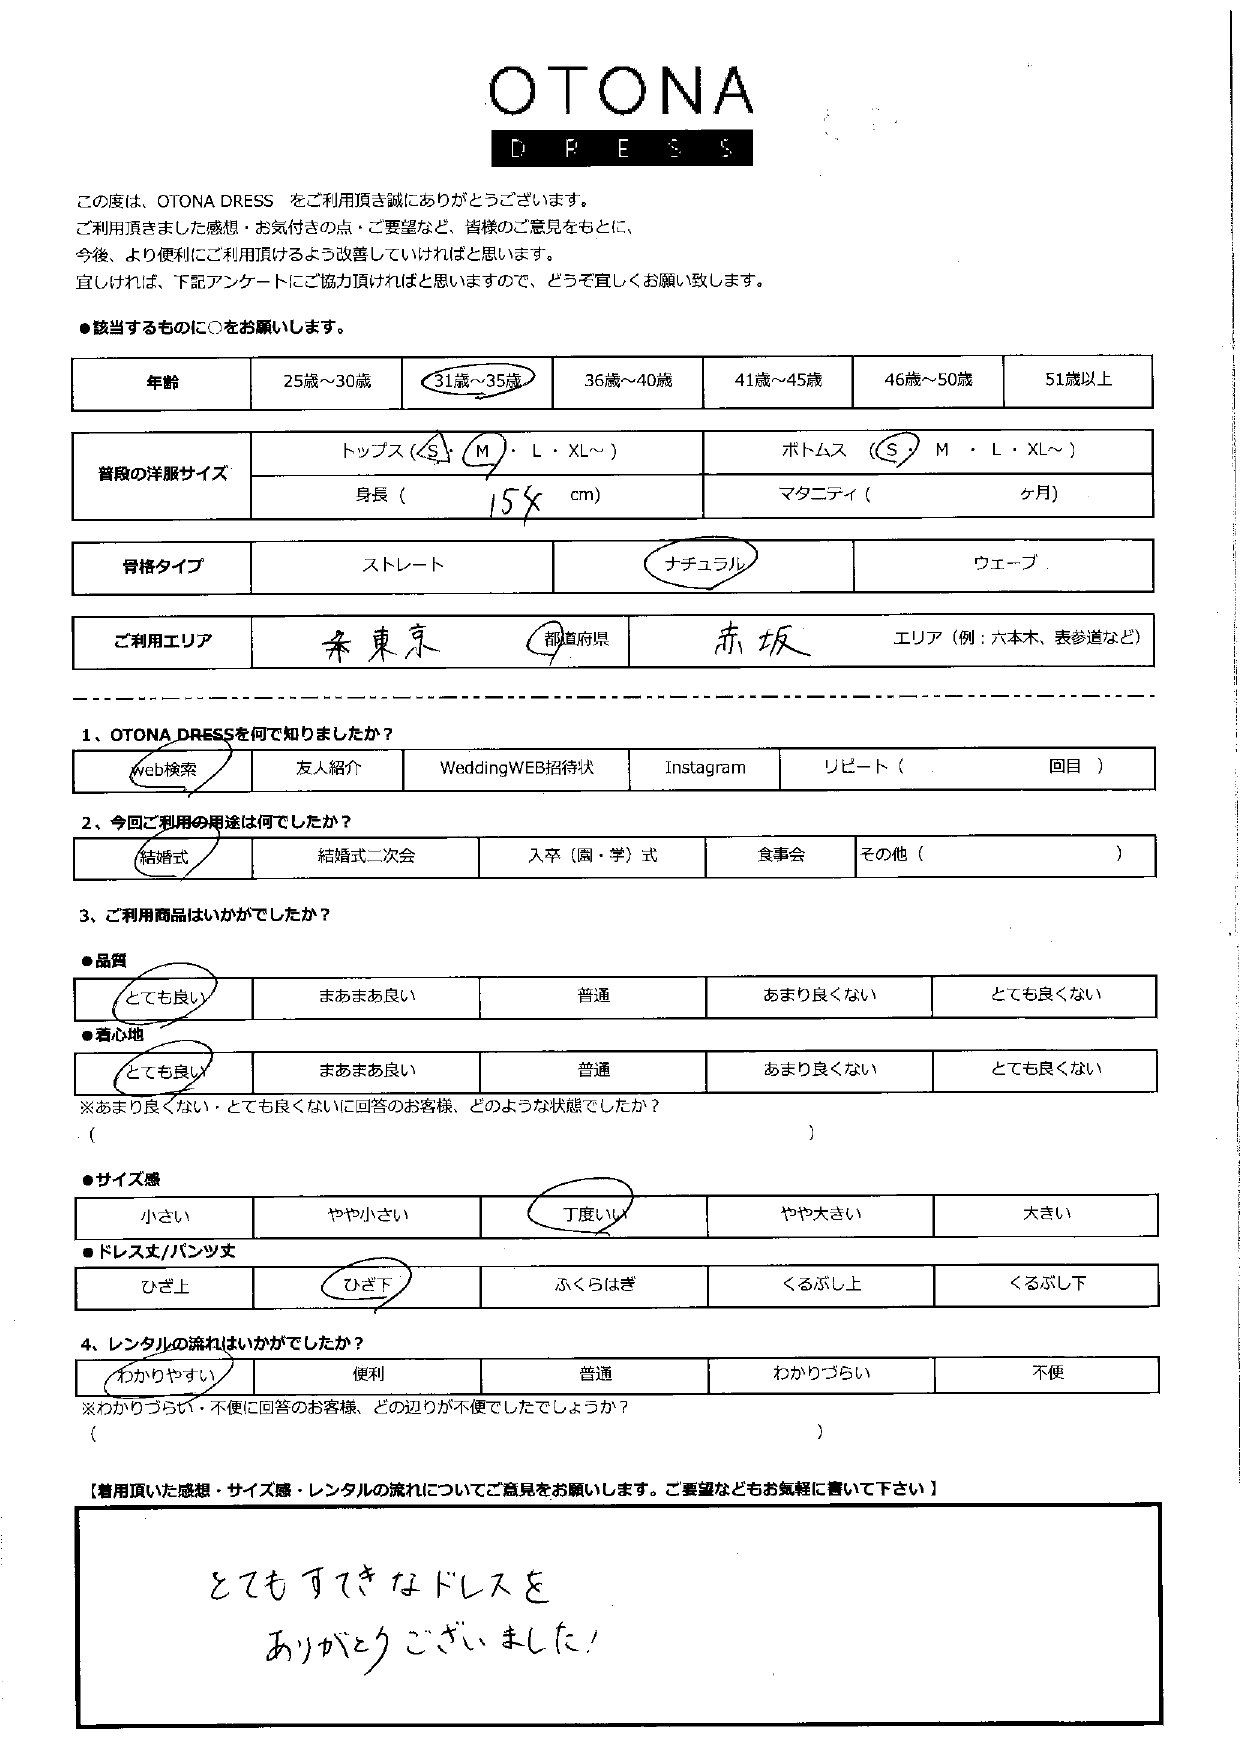 OTONA
DRESS
この度は、OTONA DRESS　をご利用頂き誠にありがとうございます。
ご利用頂きました感想・お気付きの点・ご要望など、皆様のご意見をもとに、
今後、より便利にご利用頂けるよう改善していければと思います。
宜しければ、下記アンケートにご協力頂ければと思いますので、どうぞ宜しくお願い致します。
●該当するものに○をお願いします。
年齢 25歳～30歳 31歳～35歳 36歳～40歳 41歳～45歳 46歳～50歳 51歳以上
普段の洋服サイズ トップス（S・M・L・XL～） ボトムス（S・M・L・XL～）
身長（ 154 cm） マタニティ（ ヶ月）
骨格タイプ ストレート ナチュラル ウェーブ
ご利用エリア 東京 都道府県 赤坂 エリア（例：六本木、表参道など）
1、OTONA DRESSを何で知りましたか？
web検索 友人紹介 WeddingWEB招待状 Instagram リピート（ 回目 ）
2、今回ご利用の用途は何でしたか？
結婚式 結婚式二次会 入卒（園・学）式 食事会 その他（ ）
3、ご利用商品はいかがでしたか？
●品質
とても良い まあまあ良い 普通 あまり良くない とても良くない
●着心地
とても良い まあまあ良い 普通 あまり良くない とても良くない
※あまり良くない・とても良くないに回答のお客様、どのような状態でしたか？
（ ）
●サイズ感
小さい やや小さい 丁度いい やや大きい 大きい
●ドレス丈/パンツ丈
ひざ上 ひざ下 ふくらはぎ くるぶし上 くるぶし下
4、レンタルの流れはいかがでしたか？
わかりやすい 便利 普通 わかりづらい 不便
※わかりづらい・不便に回答のお客様、どの辺りが不便でしたでしょうか？
（ ）
【着用頂いた感想・サイズ感・レンタルの流れについてご意見をお願いします。ご要望などもお気軽に書いて下さい】
とてもすてきなドレスを
ありがとうございました!